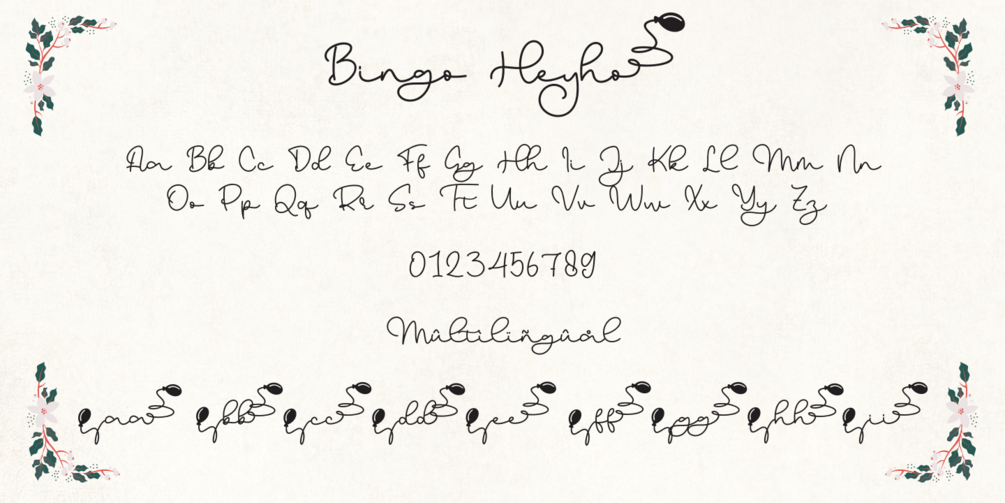 Bingo Heyho
Aa Bb Cc Dd Ee Ff Gg Hh Ii Jj Kk Ll Mm Nn
Oo Pp Qq Rr Ss Tt Uu Vv Ww Xx Yy Zz
0123456789
aaa bbb ccc ddd eee fff ggg hhh iii